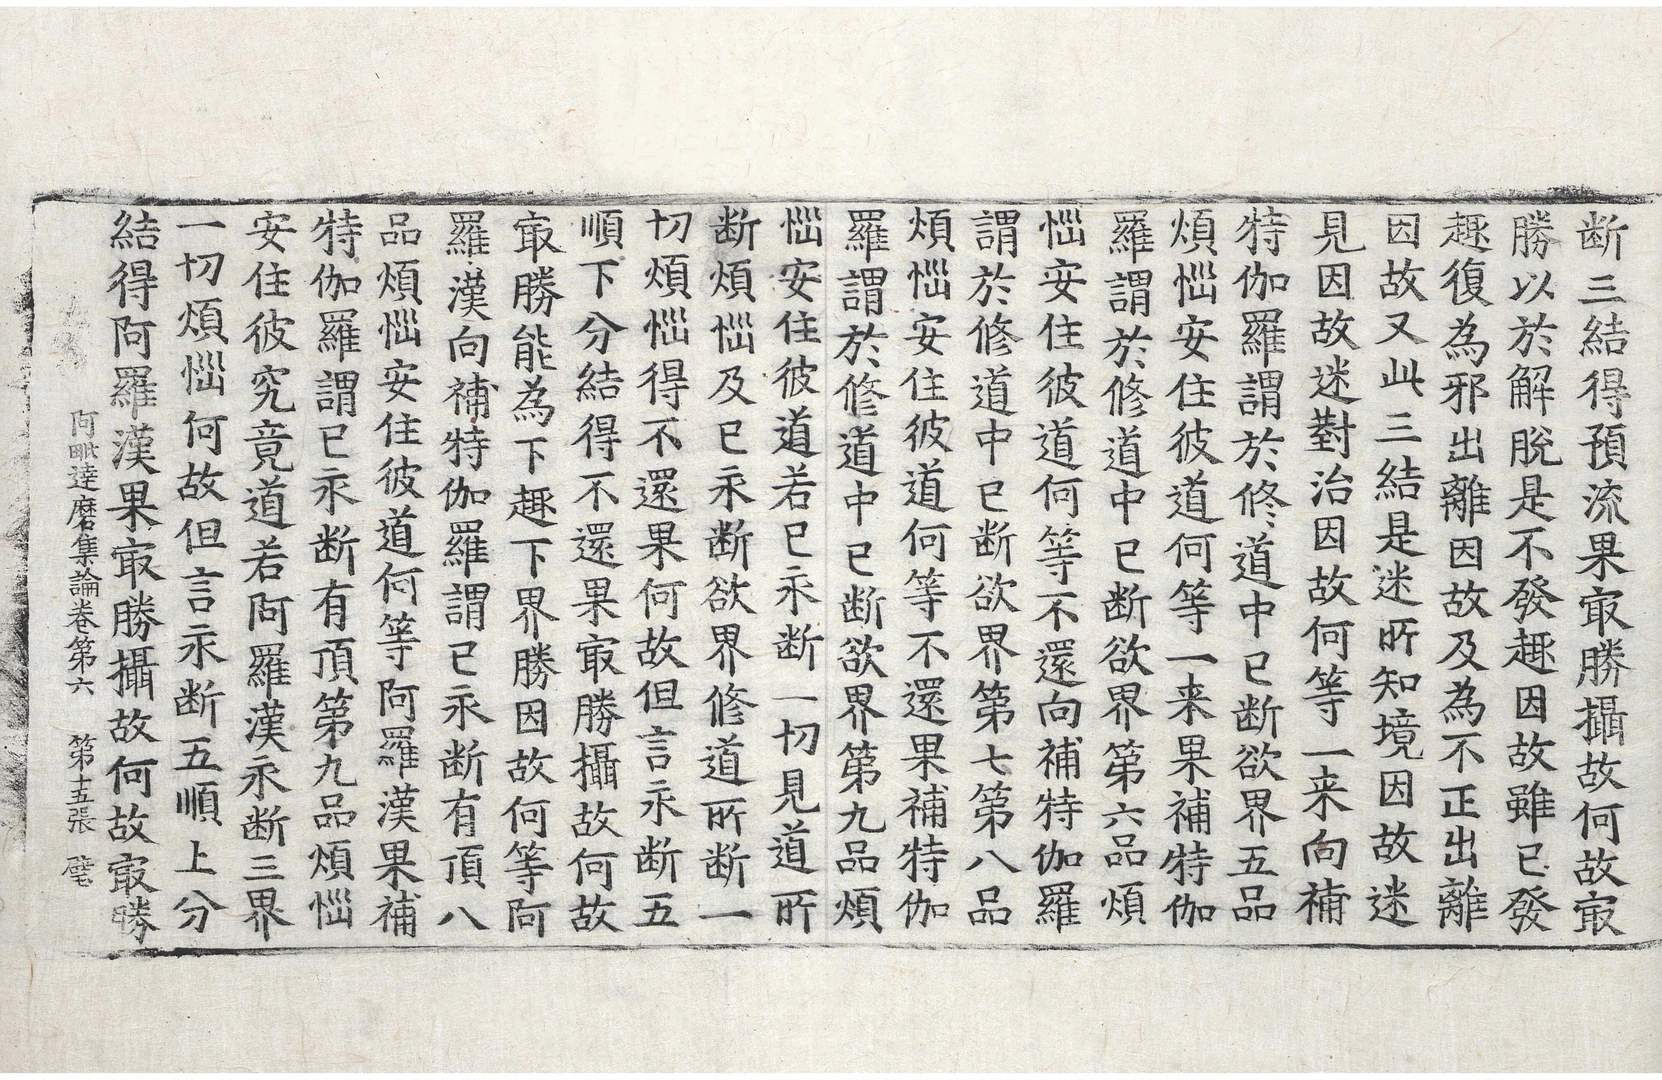 断三結得預流果㝡勝攝故何故㝡
勝以於解脫是不發趣因故雖已發
趣復為邪出離因故及為不正出離
因故又此三結是迷所知境因故迷
見因故迷對治因故何等一来向補
特伽羅謂於修道中已断欲界五品
煩惱安住彼道何等一来果補特伽
羅謂於修道中已断欲界第六品煩
惱安住彼道何等不還向補特伽羅
謂於修道中已断欲界第七第八品
煩惱安住彼道何等不還果補特伽
羅謂於修道中已断欲界第九品煩
惱安住彼道若已永断一切見道所
断煩惱及已永断欲界修道所断一
切煩惱得不還果何故但言永断五
順下分結得不還果㝡勝攝故何故
㝡勝能為下趣下界勝因故何等阿
羅漢向補特伽羅謂已永断有頂八
品煩惱安住彼道何等阿羅漢果補
特伽羅謂已永断有頂第九品煩惱
安住彼究竟道若阿羅漢永断三界
一切煩惱何故但言永断五順上分
結得阿羅漢果㝡勝攝故何故㝡勝
阿毗達磨集論卷第六　第十五張　璧